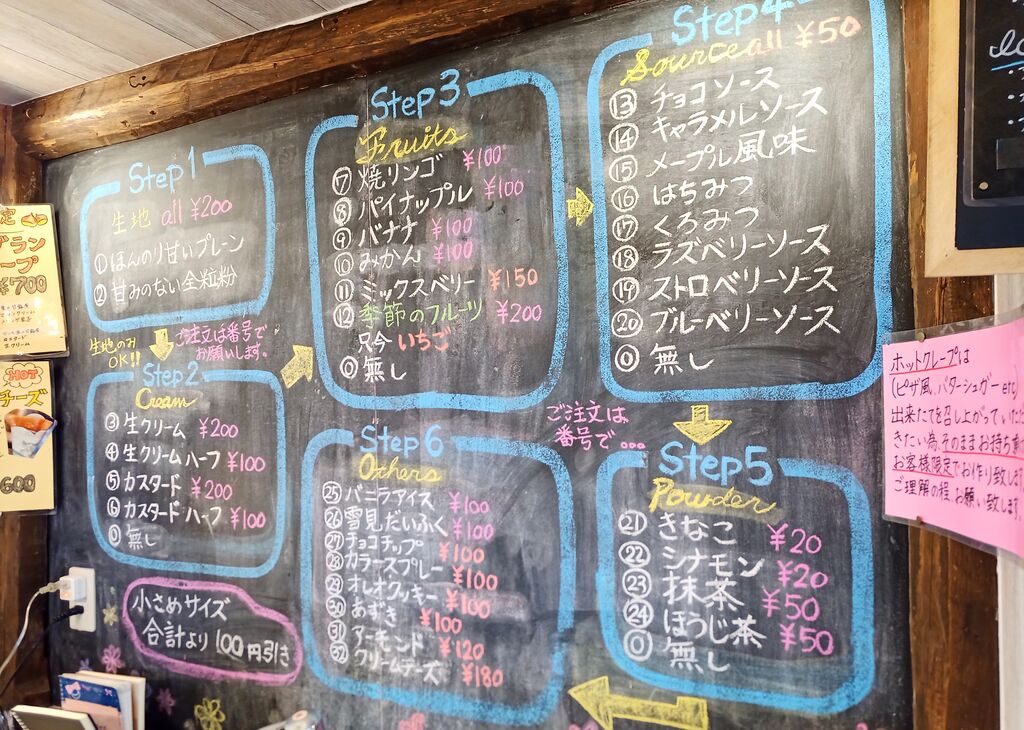 Step 1
生地 all ¥200
① ほんのり甘いプレーン
② 甘みのない全粒粉
生地のみ
OK!!
ご注文は番号で
お願いします。
Step 2
Cream
③ 生クリーム ¥200
④ 生クリームハーフ ¥100
⑤ カスタード ¥200
⑥ カスタードハーフ ¥100
⓪ 無し
小さめサイズ
合計より100円引き
Step 3
Fruits
⑦ 焼リンゴ ¥100
⑧ パイナップル ¥100
⑨ バナナ ¥100
⑩ みかん ¥100
⑪ ミックスベリー ¥150
⑫ 季節のフルーツ ¥200
只今 いちご
⓪ 無し
Step 4
Source all ¥50
⑬ チョコソース
⑭ キャラメルソース
⑮ メープル風味
⑯ はちみつ
⑰ くろみつ
⑱ ラズベリーソース
⑲ ストロベリーソース
⑳ ブルーベリーソース
⓪ 無し
ご注文は
番号で...
Step 5
Powder
㉑ きなこ ¥20
㉒ シナモン ¥20
㉓ 抹茶 ¥50
㉔ ほうじ茶 ¥50
⓪ 無し
Step 6
Others
㉕ バニラアイス ¥100
㉖ 雪見だいふく ¥100
㉗ チョコチップ ¥100
㉘ カラースプレー ¥100
㉙ オレオクッキー ¥100
㉚ あずき ¥100
㉛ アーモンド ¥120
㉜ クリームチーズ ¥180
定
グラン
ープ
¥700
HOT
チーズ
600
ホットクレープは
(ピザ風、バターシュガー etc)
出来たてを召し上がっていただ
きたい為、そのままお持ち
お客様限定でお作り致します
ご理解の程、お願い致します